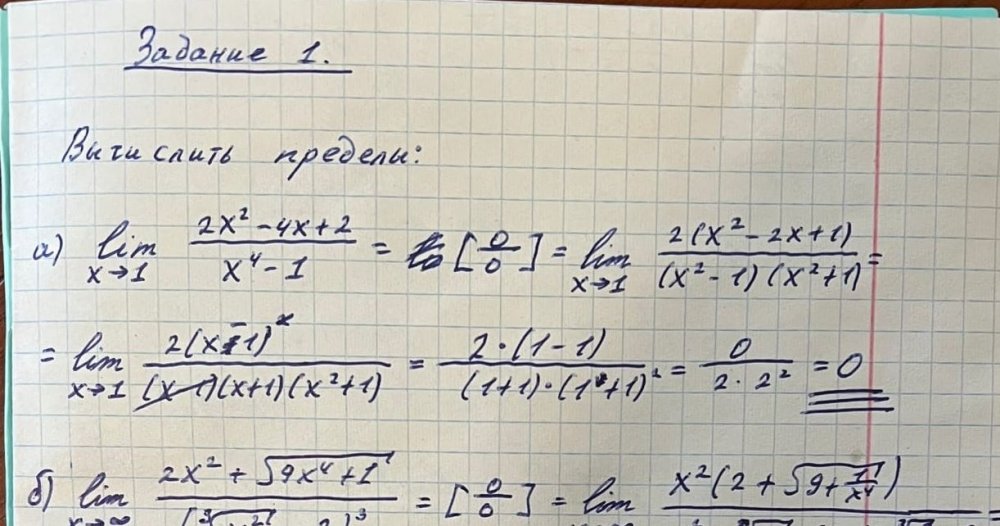 Задание 1.
Вычислить пределы:
а) lim x→1 (2x² - 4x + 2)/(x⁴ - 1) = [0/0] = lim x→1 2(x² - 2x + 1)/((x² - 1)(x² + 1)) =
= lim x→1 2(x-1)²/((x-1)(x+1)(x²+1)) = 2·(1-1)/((1+1)·(1²+1)²) = 0/(2·2²) = 0
б) lim x→∞ (2x² + √(9x⁴+1))/ = [0/0] = lim x²(2 + √(9+1/x⁴))